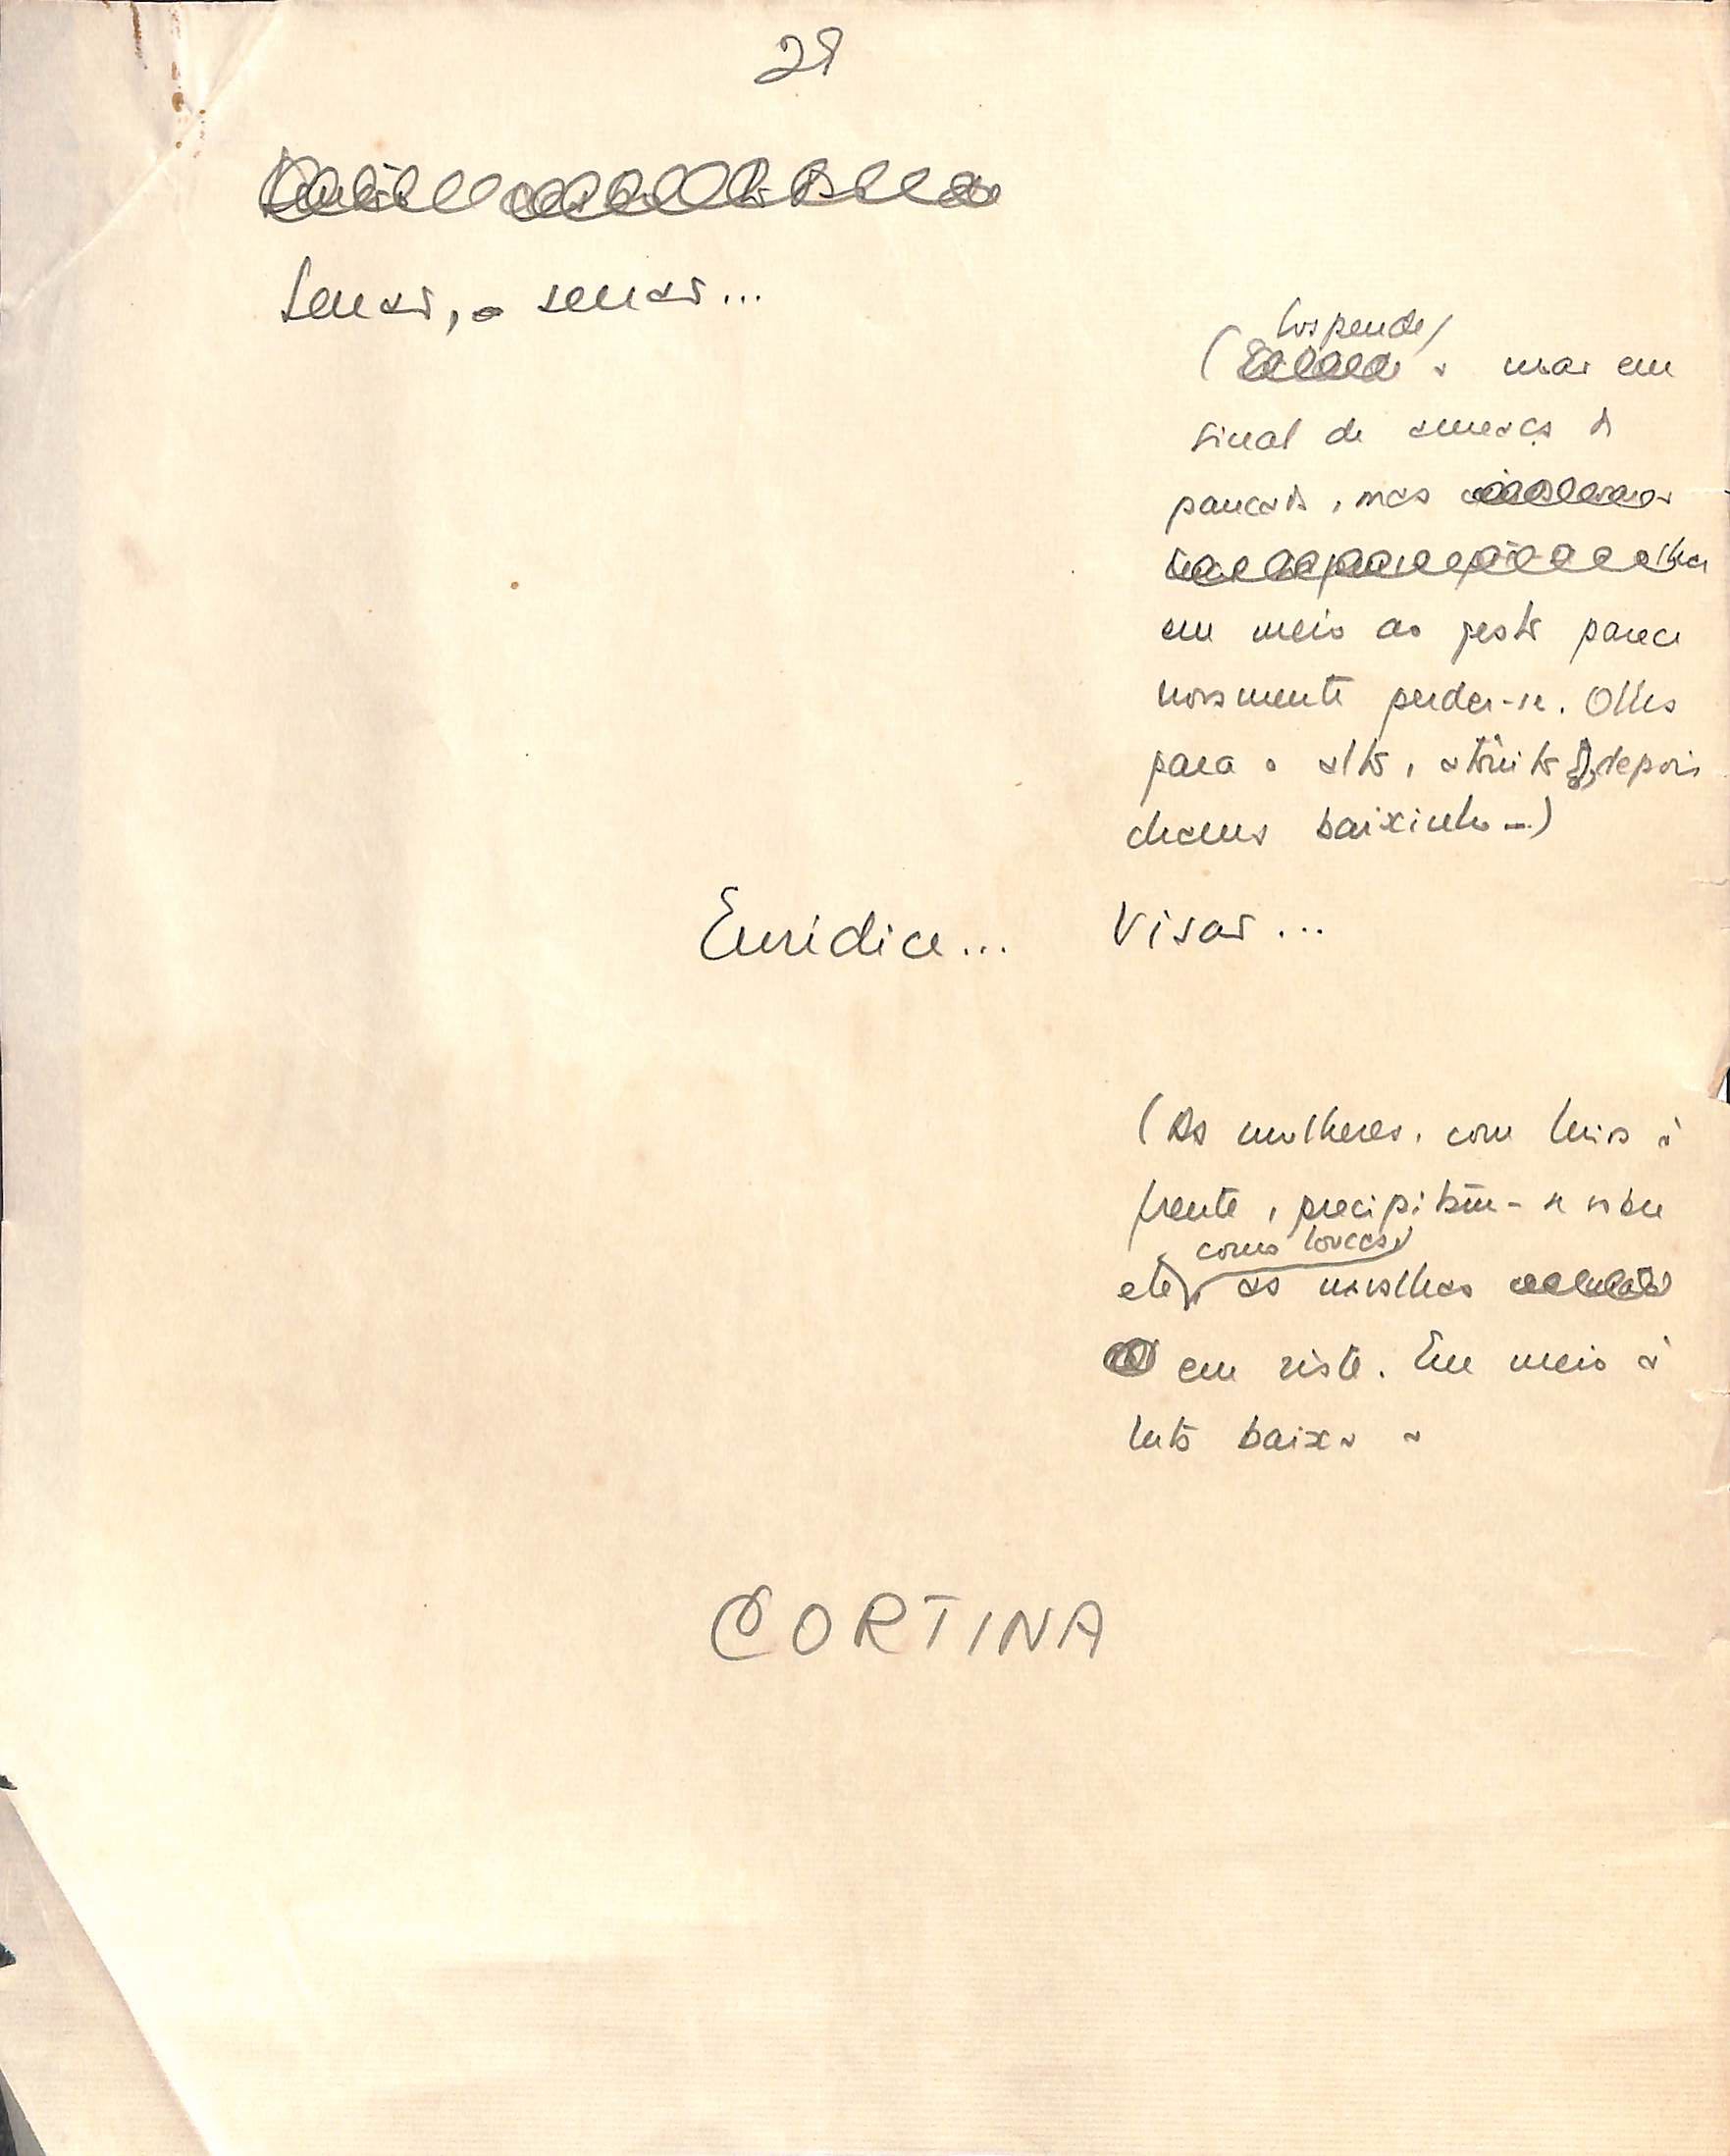 29
Senão, senão...
Suspende
( a mão em
sinal de ameaça de
pancada, mas
em meio ao gesto parece
novamente perder-se. Olha
para o alto, atônito, depois
chama baixinho —)
Eurídice... Visão...
(As mulheres, com Mira à
frente, precipitam-se sobre
como loucas,
ele, as navalhas
em riste. Em meio à
luta baixa a
CORTINA